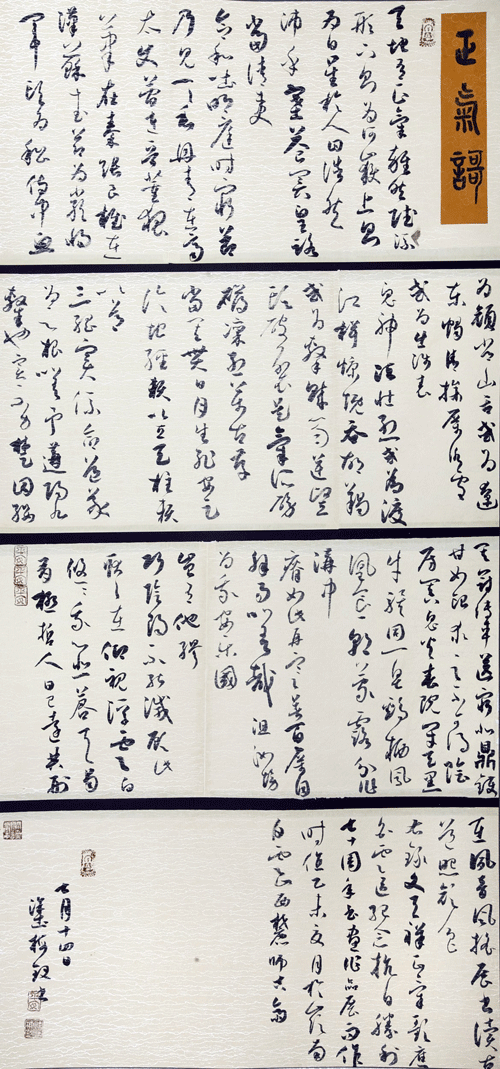 正氣謌
天地有正氣雜然賦流
形下則為河嶽上則
為日星於人曰浩然
沛乎塞蒼冥皇路
當清夷
含和吐明庭時窮節
乃見一一垂丹青在齊
太史簡在晉董狐
筆在秦張良椎在
漢蘇武節為嚴將
軍頭為嵇侍中血
為顏常山舌或為遼
東帽清操厲冰雪
或為出師表
鬼神泣壯烈或為渡
江楫慷慨吞胡羯
或為擊賊笏逆豎
頭破裂是氣所磅
礴凜烈萬古存
當其貫日月生死安足
論地維賴以立天柱賴
以尊
三綱實系命道義
為之根嗟予遘陽九
隸也實不力楚囚纓
其冠傳車送窮北鼎鑊
甘如飴求之不可得陰
房鬼火春院閟天黑
牛驥同一皂雞棲鳳
凰食一朝蒙霧露分作
溝中
瘠如此再寒暑百厲自
辟易哉沮洳場
為我安樂國
豈有他繆
巧陰陽不能賊顧此
耿耿在仰視浮雲白
悠悠我心悲蒼天曷
有極哲人日已遠典刑
在夙昔風簷展書讀古
道照顏色
右錄文天祥正氣歌應
白雲之邀紀念抗日勝利
七十周年書畫作品展而作
時值乙未夏月於嶺南
白雲之西麓師古齋
七月十四日